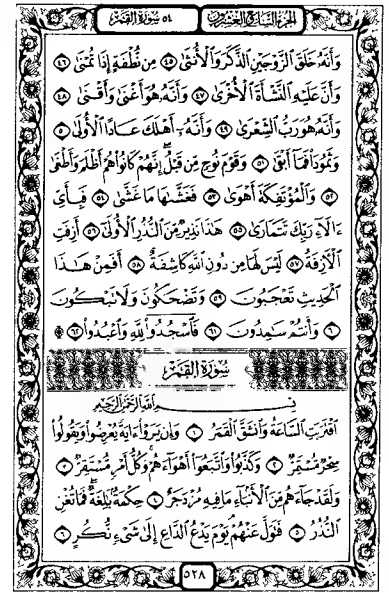 الجزء السابع والعشرون ٥٤ سورة القمر
وَأَنَّهُ خَلَقَ الزَّوْجَيْنِ الذَّكَرَ وَالْأُنثَىٰ ٤٥ مِن نُّطْفَةٍ إِذَا تُمْنَىٰ ٤٦
وَأَنَّ عَلَيْهِ النَّشْأَةَ الْأُخْرَىٰ ٤٧ وَأَنَّهُ هُوَ أَغْنَىٰ وَأَقْنَىٰ ٤٨
وَأَنَّهُ هُوَ رَبُّ الشِّعْرَىٰ ٤٩ وَأَنَّهُ أَهْلَكَ عَادًا الْأُولَىٰ ٥٠
وَثَمُودَا فَمَا أَبْقَىٰ ٥١ وَقَوْمَ نُوحٍ مِّن قَبْلُ إِنَّهُمْ كَانُوا هُمْ أَظْلَمَ وَأَطْغَىٰ
٥٢ وَالْمُؤْتَفِكَةَ أَهْوَىٰ ٥٣ فَغَشَّىٰهَا مَا غَشَّىٰ ٥٤ فَبِأَيِّ
ءَالَاءِ رَبِّكَ تَتَمَارَىٰ ٥٥ هَٰذَا نَذِيرٌ مِّنَ النُّذُرِ الْأُولَىٰ ٥٦ أَزِفَتِ
الْآزِفَةُ ٥٧ لَيْسَ لَهَا مِن دُونِ اللَّهِ كَاشِفَةٌ ٥٨ أَفَمِنْ هَٰذَا
الْحَدِيثِ تَعْجَبُونَ ٥٩ وَتَضْحَكُونَ وَلَا تَبْكُونَ
٦٠ وَأَنتُمْ سَامِدُونَ ٦١ فَاسْجُدُوا لِلَّهِ وَاعْبُدُوا ٦٢
سورة القمر
بِسْمِ اللَّهِ الرَّحْمَٰنِ الرَّحِيمِ
اقْتَرَبَتِ السَّاعَةُ وَانشَقَّ الْقَمَرُ ١ وَإِن يَرَوْا ءَايَةً يُعْرِضُوا وَيَقُولُوا
سِحْرٌ مُّسْتَمِرٌّ ٢ وَكَذَّبُوا وَاتَّبَعُوا أَهْوَاءَهُمْ وَكُلُّ أَمْرٍ مُّسْتَقِرٌّ ٣
وَلَقَدْ جَاءَهُم مِّنَ الْأَنبَاءِ مَا فِيهِ مُزْدَجَرٌ ٤ حِكْمَةٌ بَالِغَةٌ فَمَا تُغْنِ
النُّذُرُ ٥ فَتَوَلَّ عَنْهُمْ يَوْمَ يَدْعُ الدَّاعِ إِلَىٰ شَيْءٍ نُّكُرٍ ٦
٥٢٨